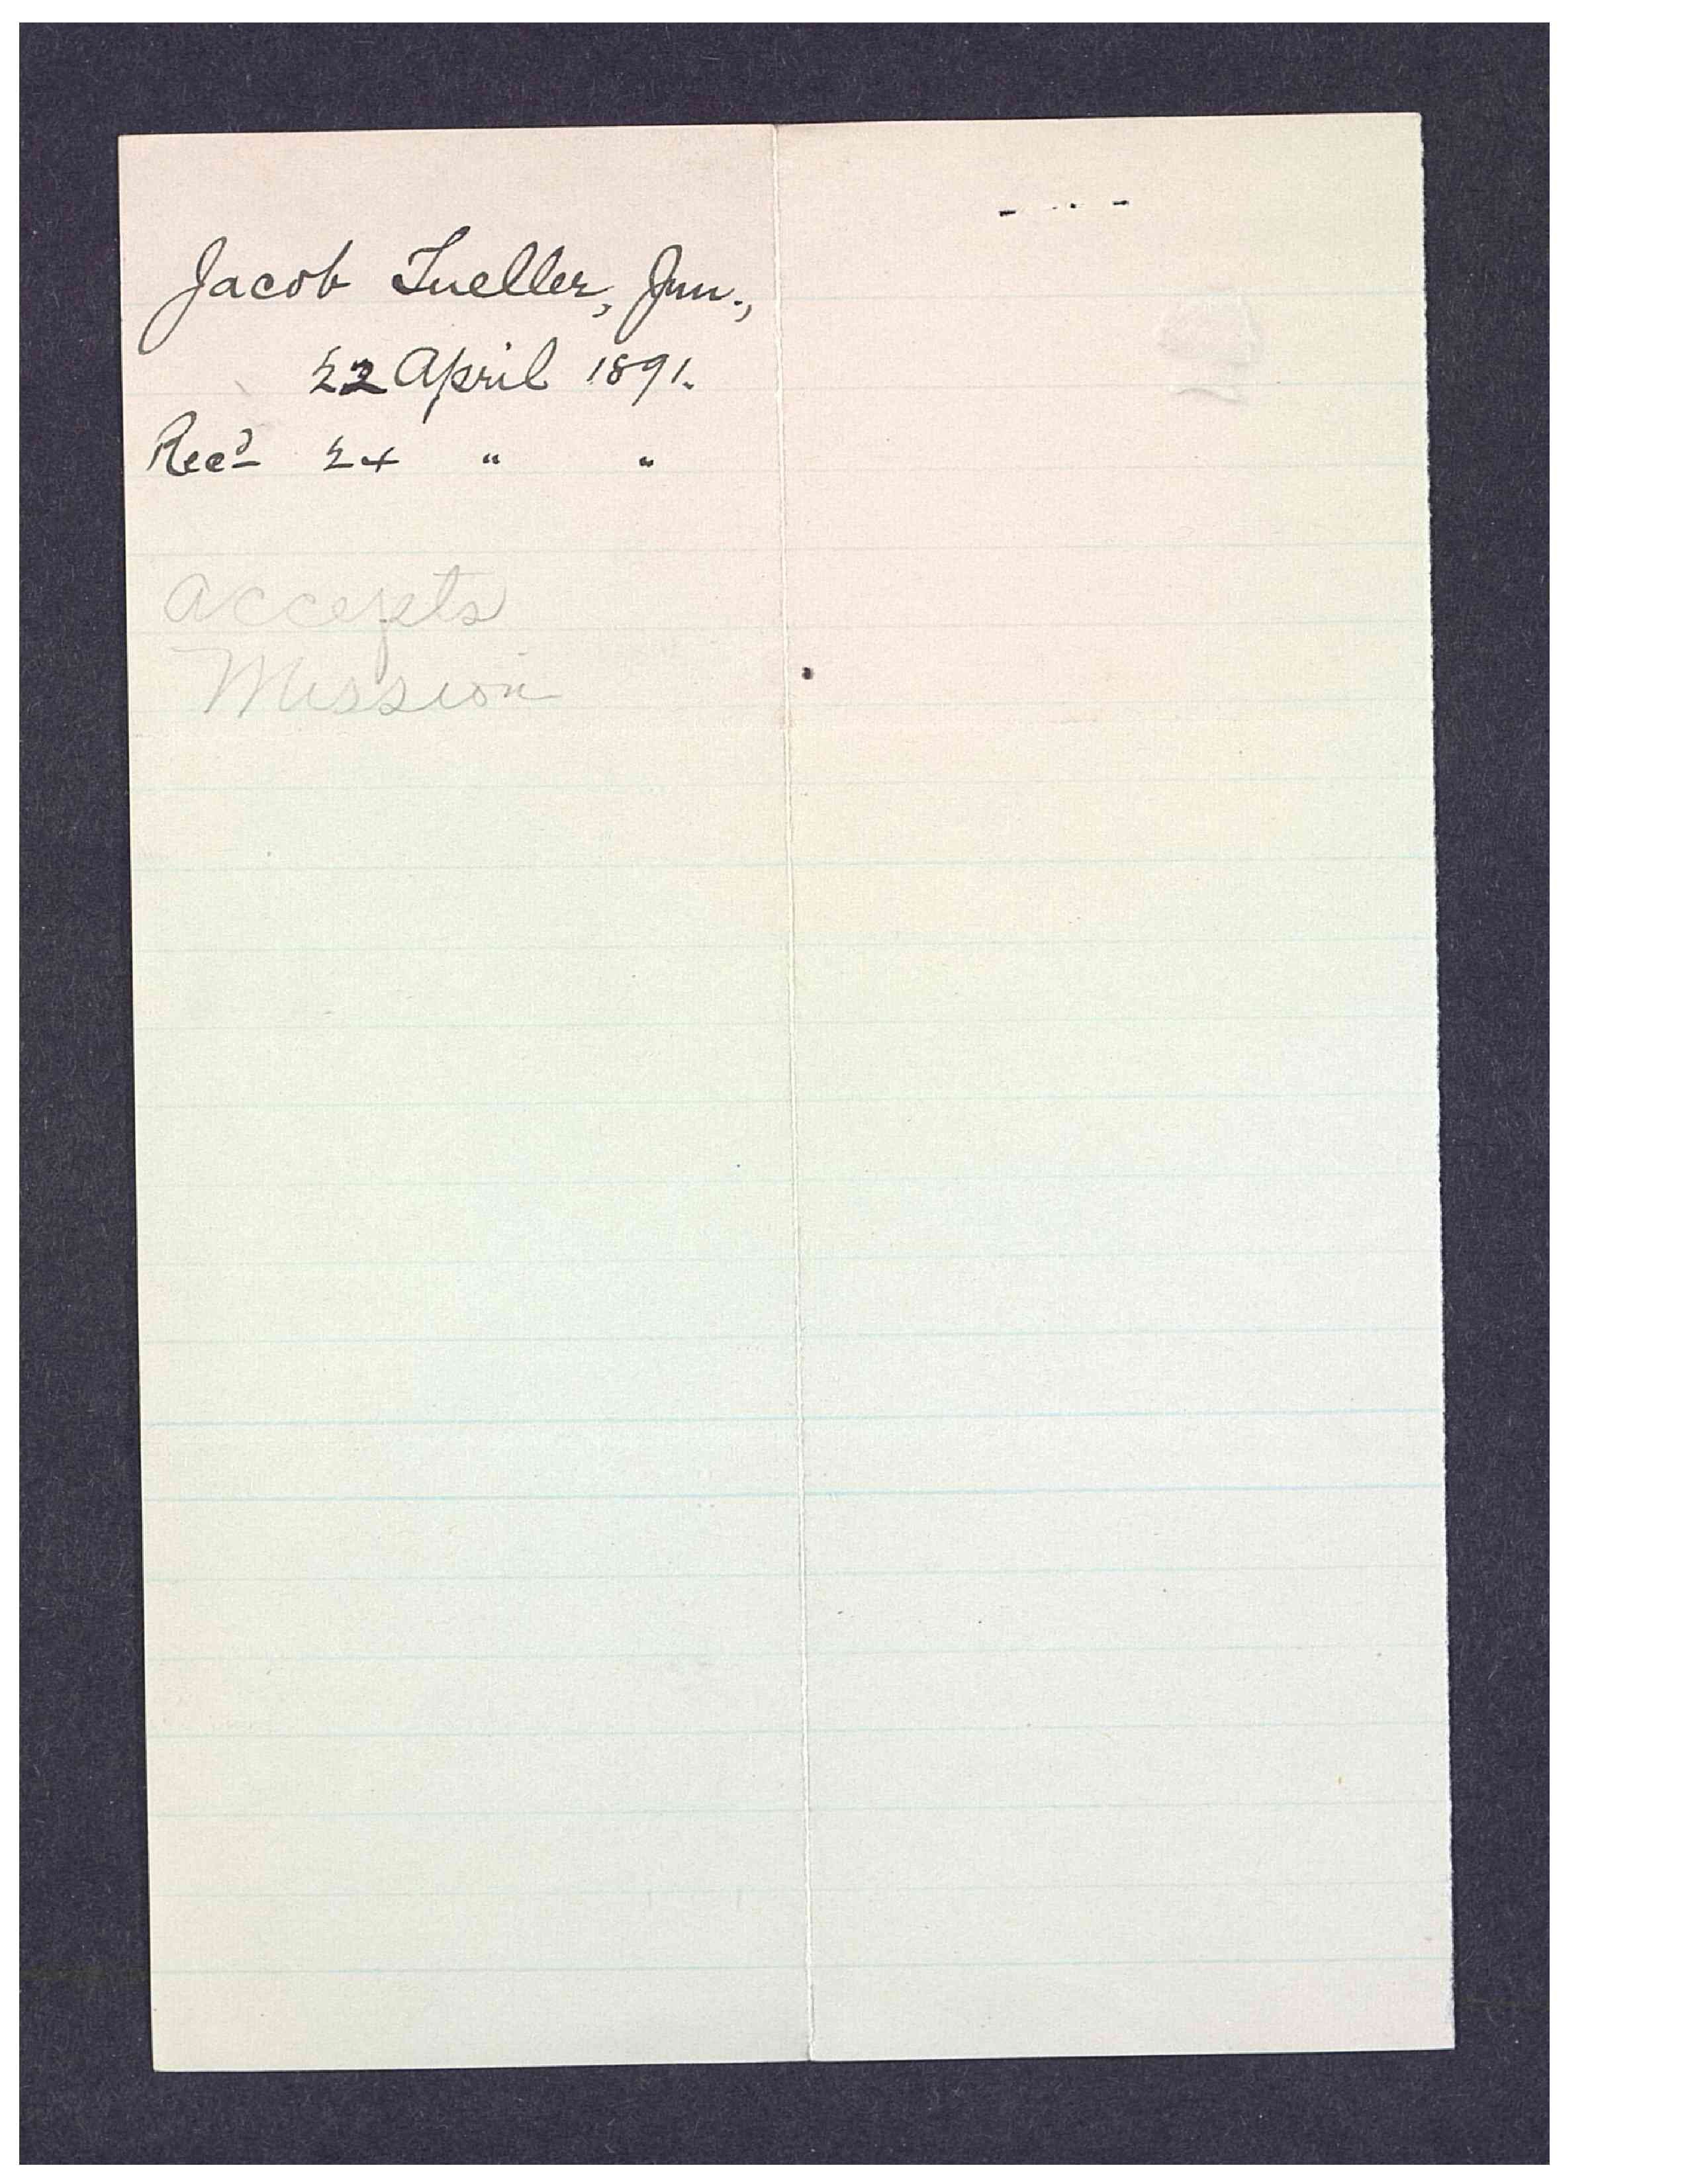 Jacob Tueller, Jun.,
22 April 1891.
Rec'd 24 " "
accepts
Mission